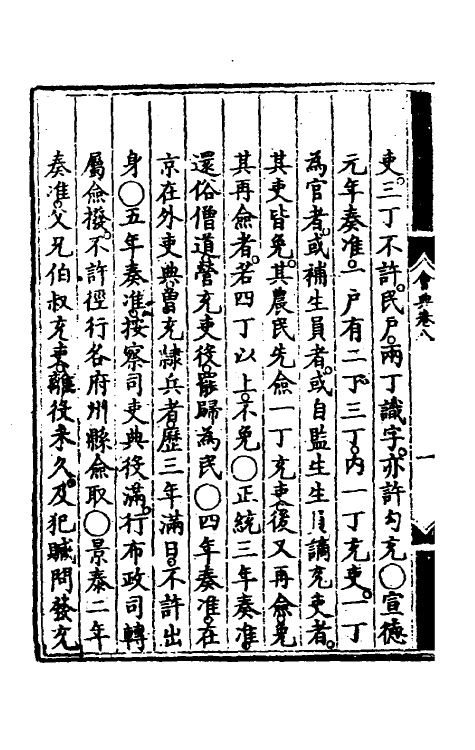 會典卷八
一
吏。三丁不許。民戶。兩丁識字。亦許勾充〇宣德
元年奏准。一戶有二丁。三丁。內一丁充吏。一丁
為官者。或補生員者。或自監生生員謫充吏者。
其吏皆免。其農民先僉一丁充吏。後又再僉。免
其再僉者。若四丁以上。不免〇正統三年奏准。
還俗僧道營充吏役。罷歸為民〇四年奏准。在
京在外吏典曾充隸兵者。歷三年滿日。不許出
身〇五年奏准。按察司吏典役滿。行布政司轉
屬僉撥。不許徑行各府州縣僉取〇景泰二年
奏准。父兄伯叔充吏。雖役未久。及犯贓問發充